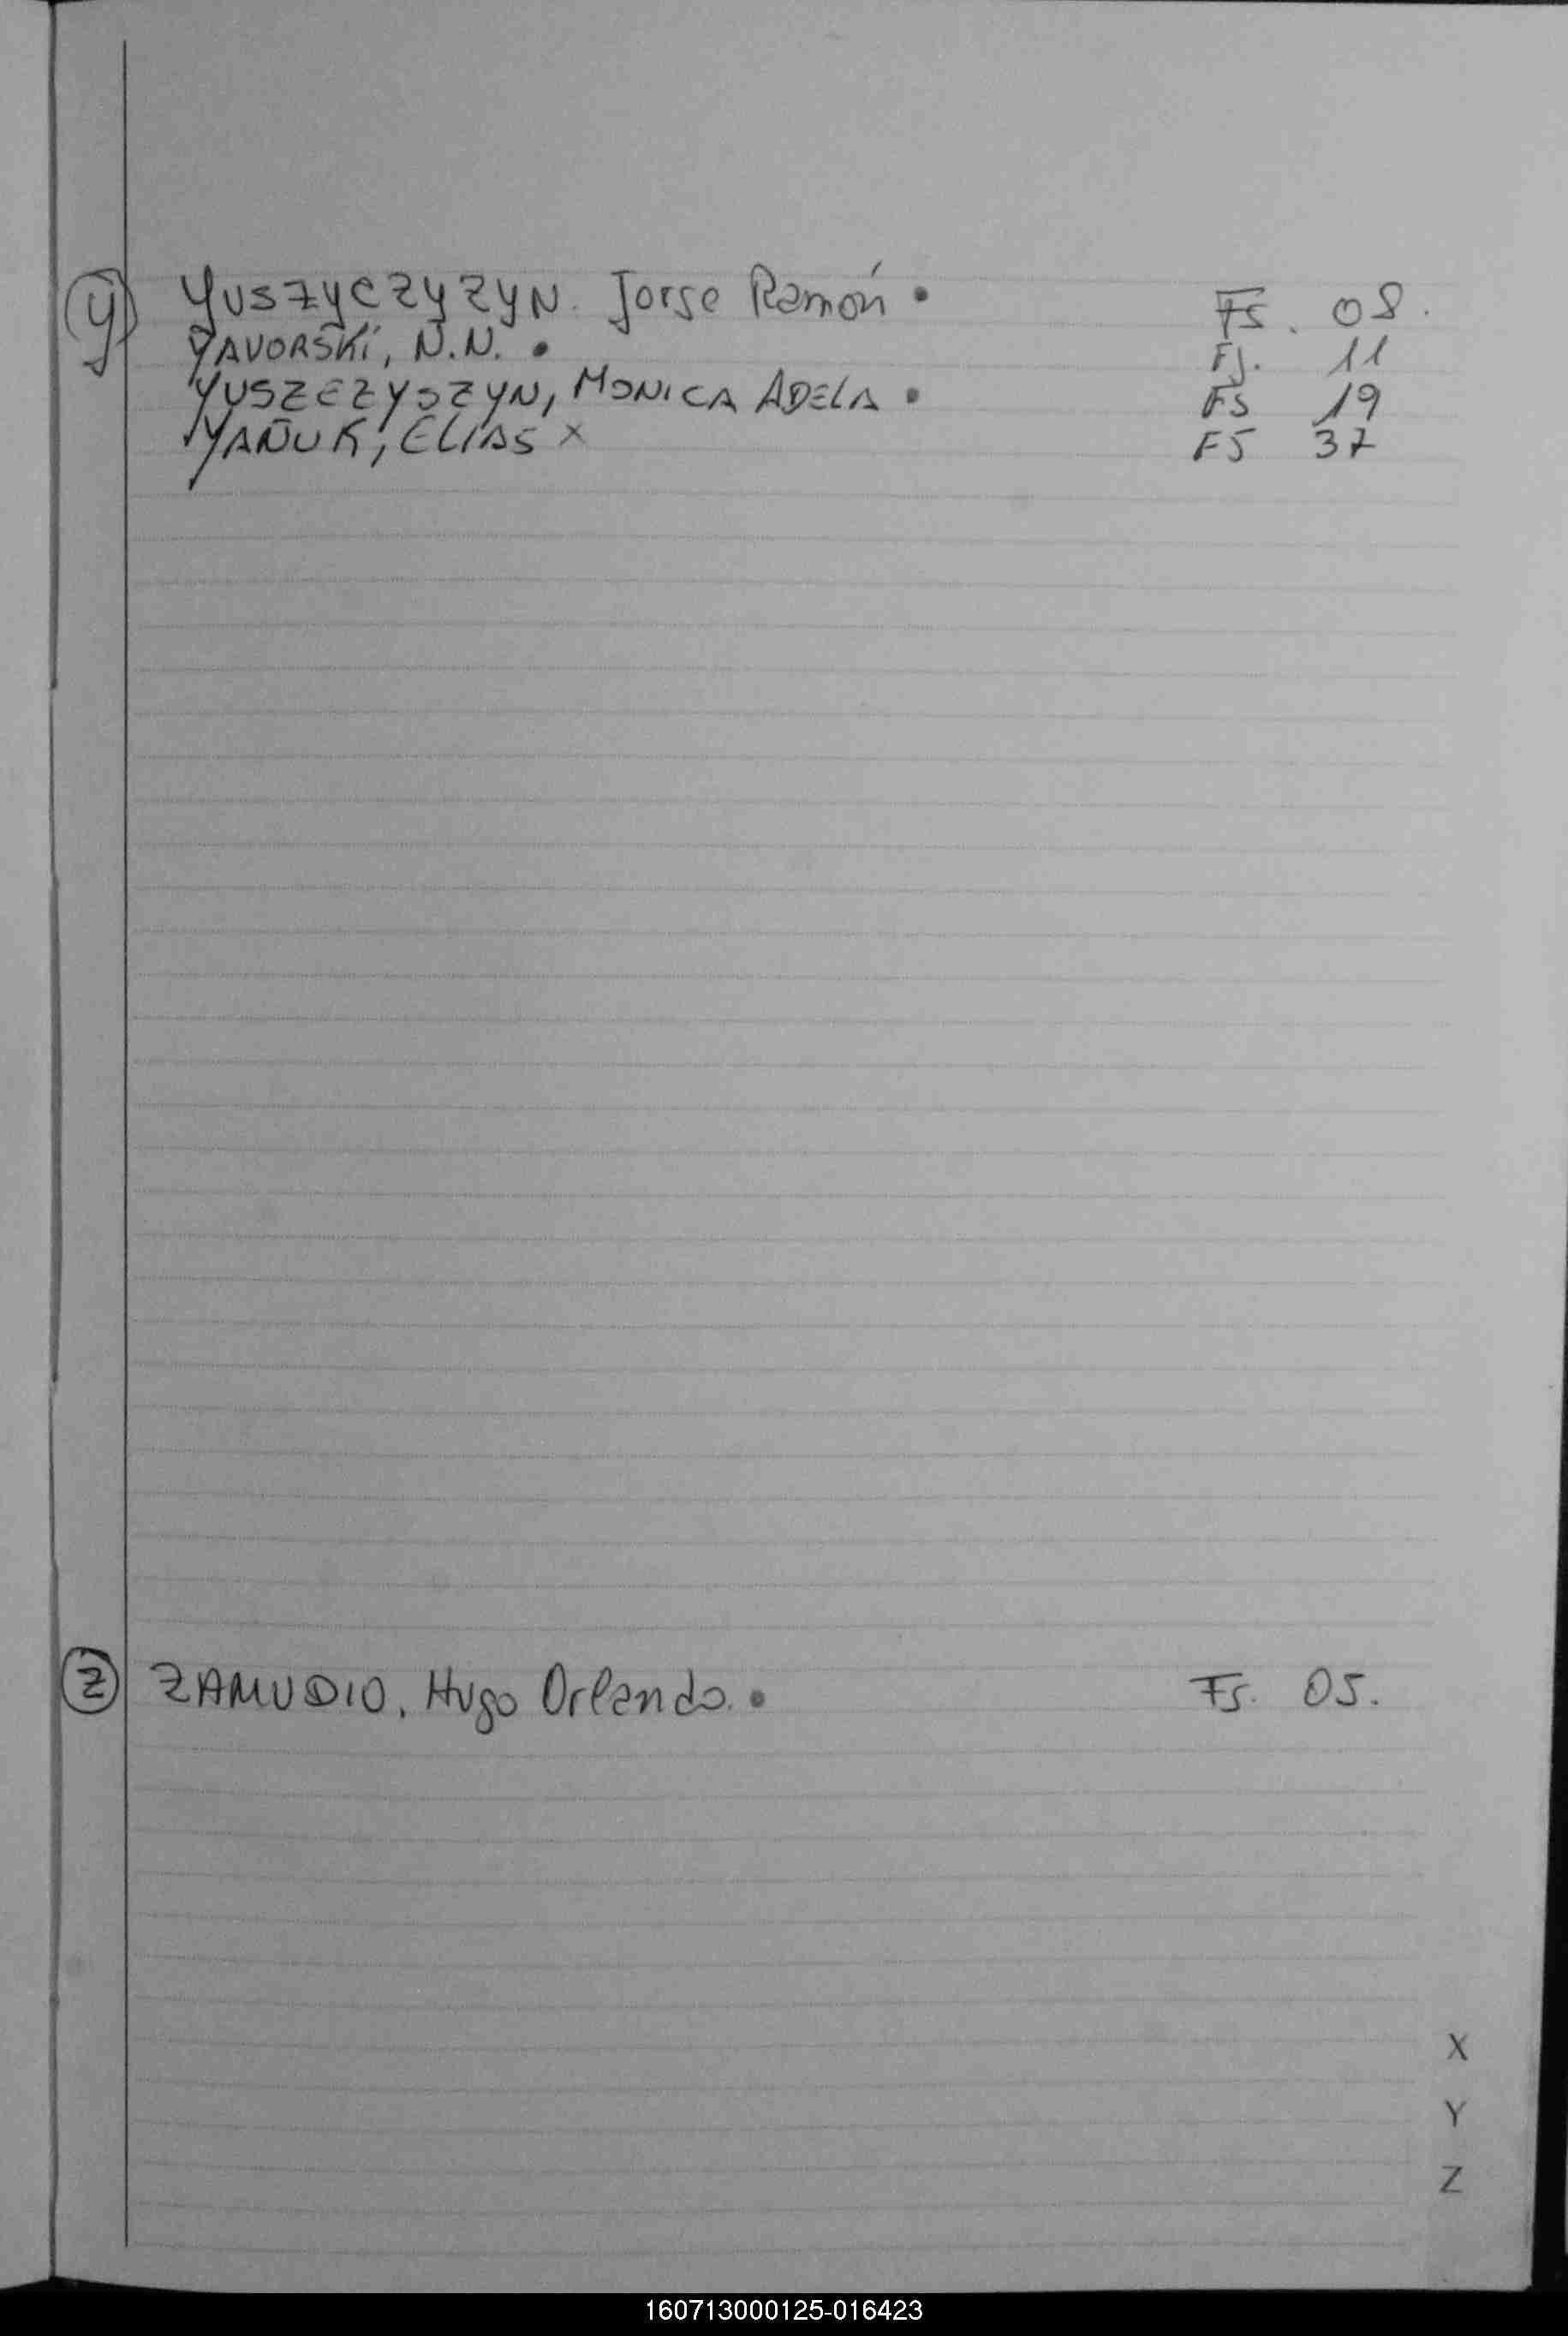 Y YUSZYCZYZYN. Jorge Ramón • Fs. 08.
YAVORSKI, N.N. • Fs. 11
YUSZEZYSZYN, MONICA ADELA • Fs 19
YAÑUK, ELIAS x FS 37
Z ZAMUDIO, Hugo Orlando. • Fs. 05.
X
Y
Z
160713000125-016423